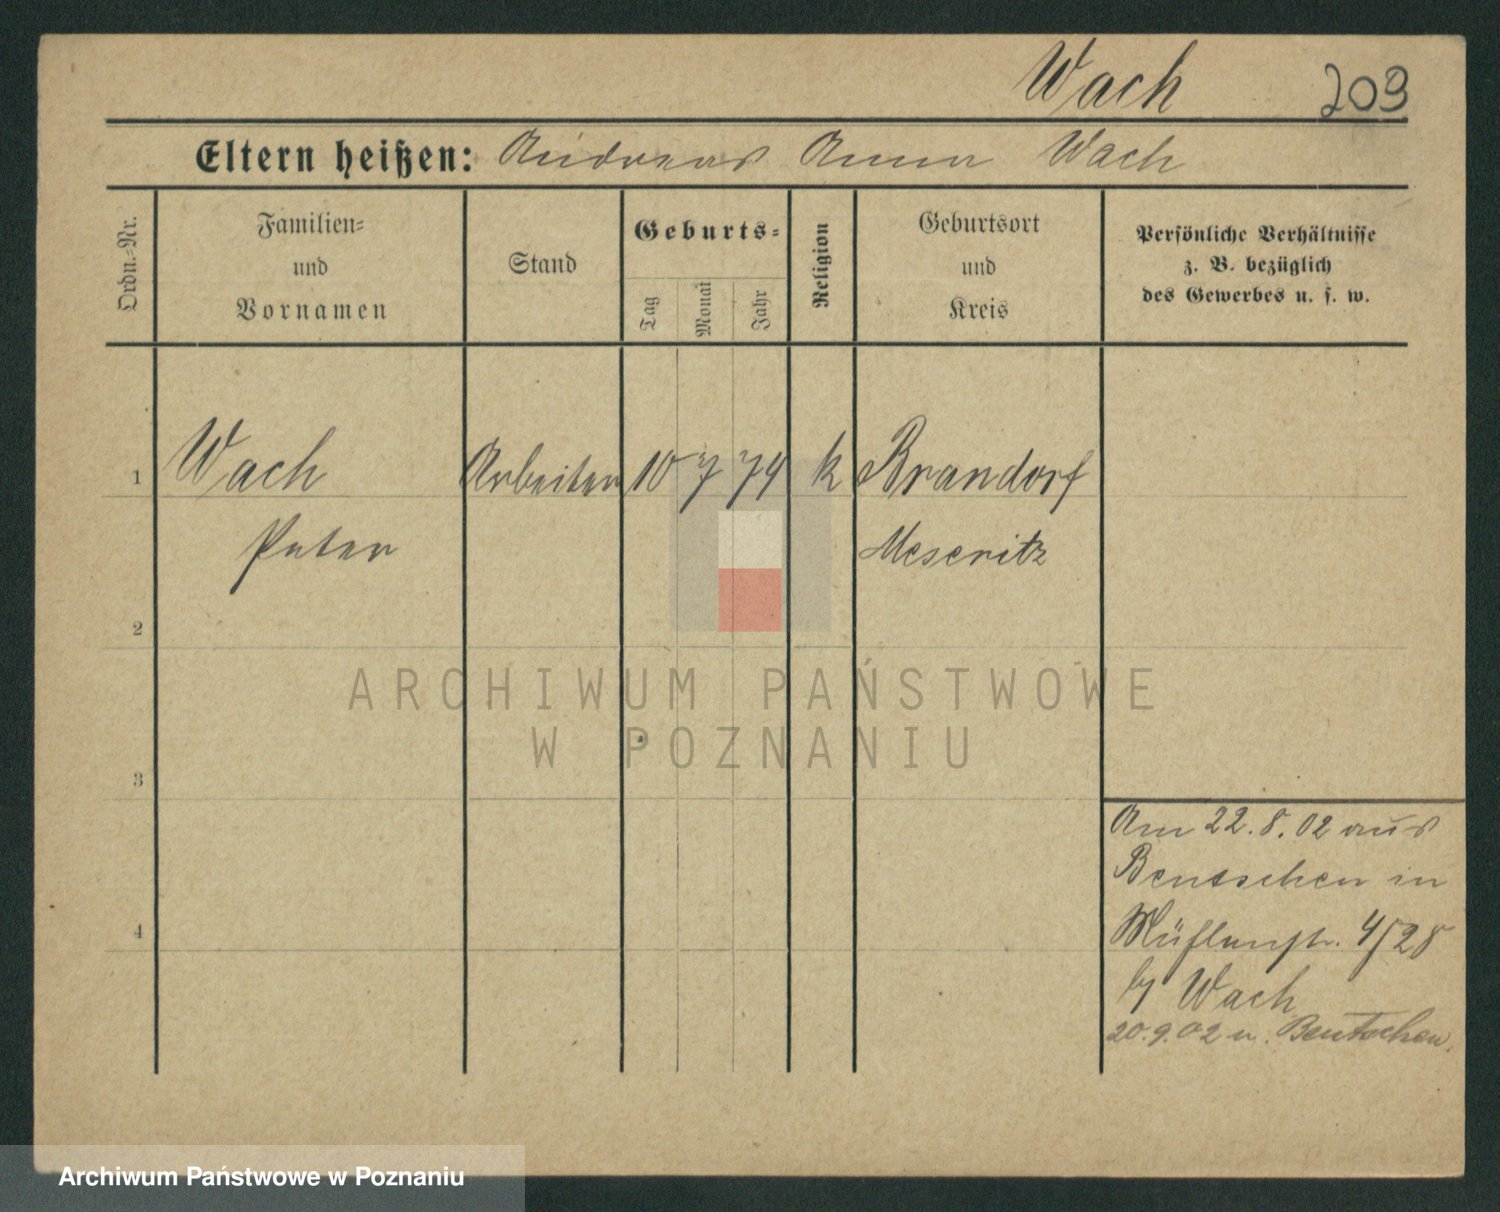 Wach 209
Eltern heißen: Andreas Anna Wach
Ordn.-Nr.
Familien-
und
Vornamen
Stand
Geburts-
Tag
Monat
Jahr
Religion
Geburtsort
und
Kreis
Persönliche Verhältnisse
z. B. bezüglich
des Gewerbes u. s. w.
1 Wach Arbeiter 10 7 74 k Brandorf
Peter Meseritz
2
3
4
Am 22.8.02 aus
Bentschen in
4/28
by Wach
20.9.02 n. Bentschen.
ARCHIWUM PAŃSTWOWE
W POZNANIU
Archiwum Państwowe w Poznaniu